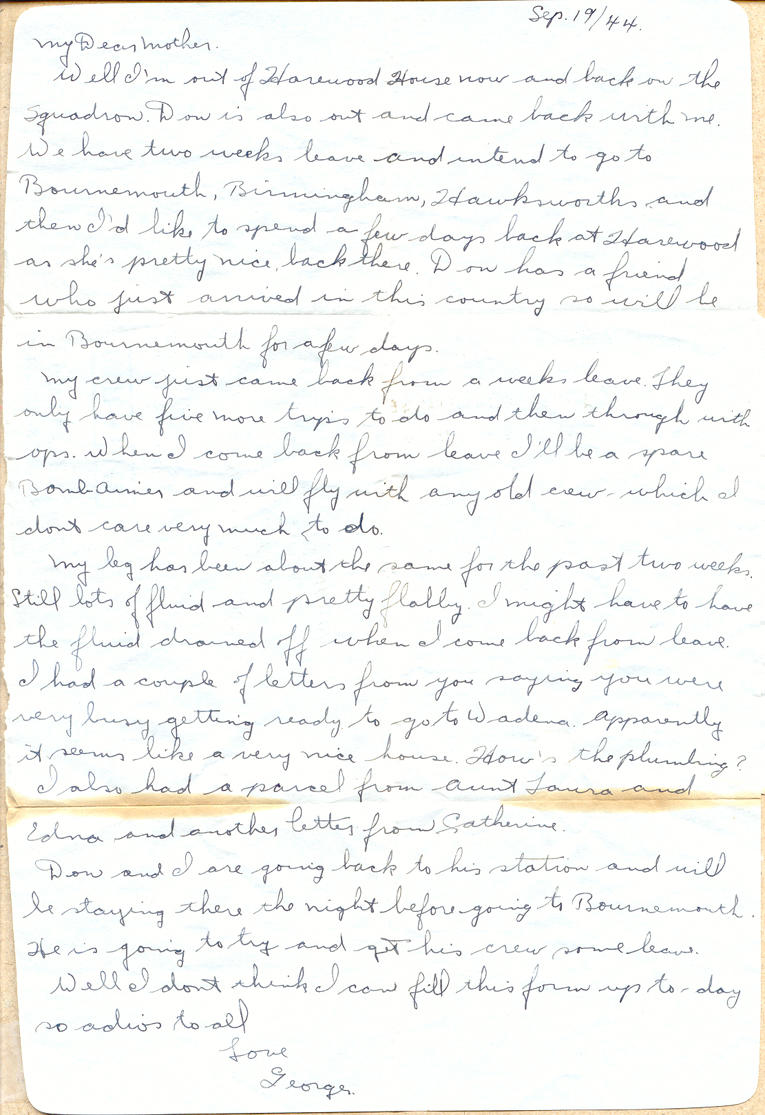 Sep. 19/44.
My Dear Mother.
Well I'm out of Harewood House now and back on the
Squadron. Don is also out and came back with me.
We have two weeks leave and intend to go to
Bournemouth, Birmingham, Hawksworths and
then I'd like to spend a few days back at Harewood
as she's pretty nice back there. Don has a friend
who just arrived in this country so will be
in Bournemouth for a few days.
My crew just came back from a weeks leave. They
only have five more trips to do and then through with
ops. When I come back from leave I'll be a spare
Bomb Aimer and will fly with any old crew - which I
dont care very much to do.
My leg has been about the same for the past two weeks.
Still lots of fluid and pretty flabby. I might have to have
the fluid drained off when I come back from leave.
I had a couple of letters from you saying you were
very busy getting ready to go to Wadena. Apparently
it seems like a very nice house. How's the plumbing?
I also had a parcel from Aunt Laura and
Edna and another letter from Catherine.
Don and I are going back to his station and will
be staying there the night before going to Bournemouth.
He is going to try and get his crew some leave.
Well I dont think I can fill this form up to-day
so adios to all
Love
George.